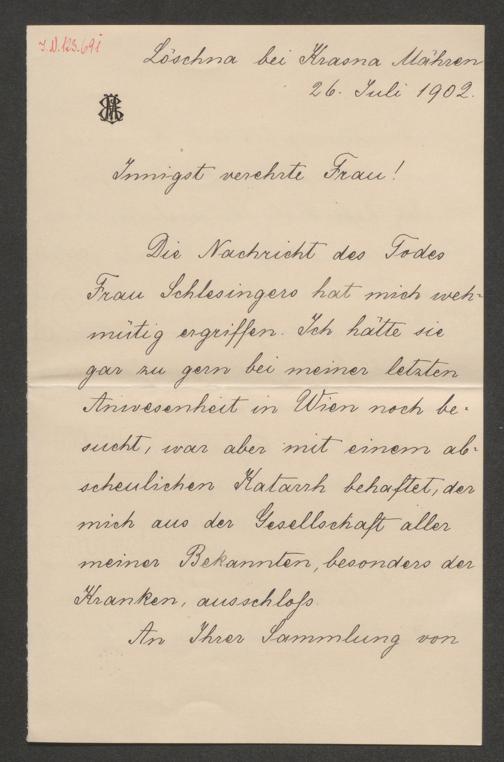 J.N. 123.691
Löschna bei Krasna Mähren
26. Juli 1902.
Innigst verehrte Frau!
Die Nachricht des Todes
Frau Schlesingers hat mich weh-
mütig ergriffen. Ich hätte sie
gar zu gern bei meiner letzten
Anwesenheit in Wien noch be-
sucht, war aber mit einem ab-
scheulichen Katarrh behaftet, der
mich aus der Gesellschaft aller
meiner Bekannten, besonders der
Kranken, ausschloß.
An Ihrer Sammlung von